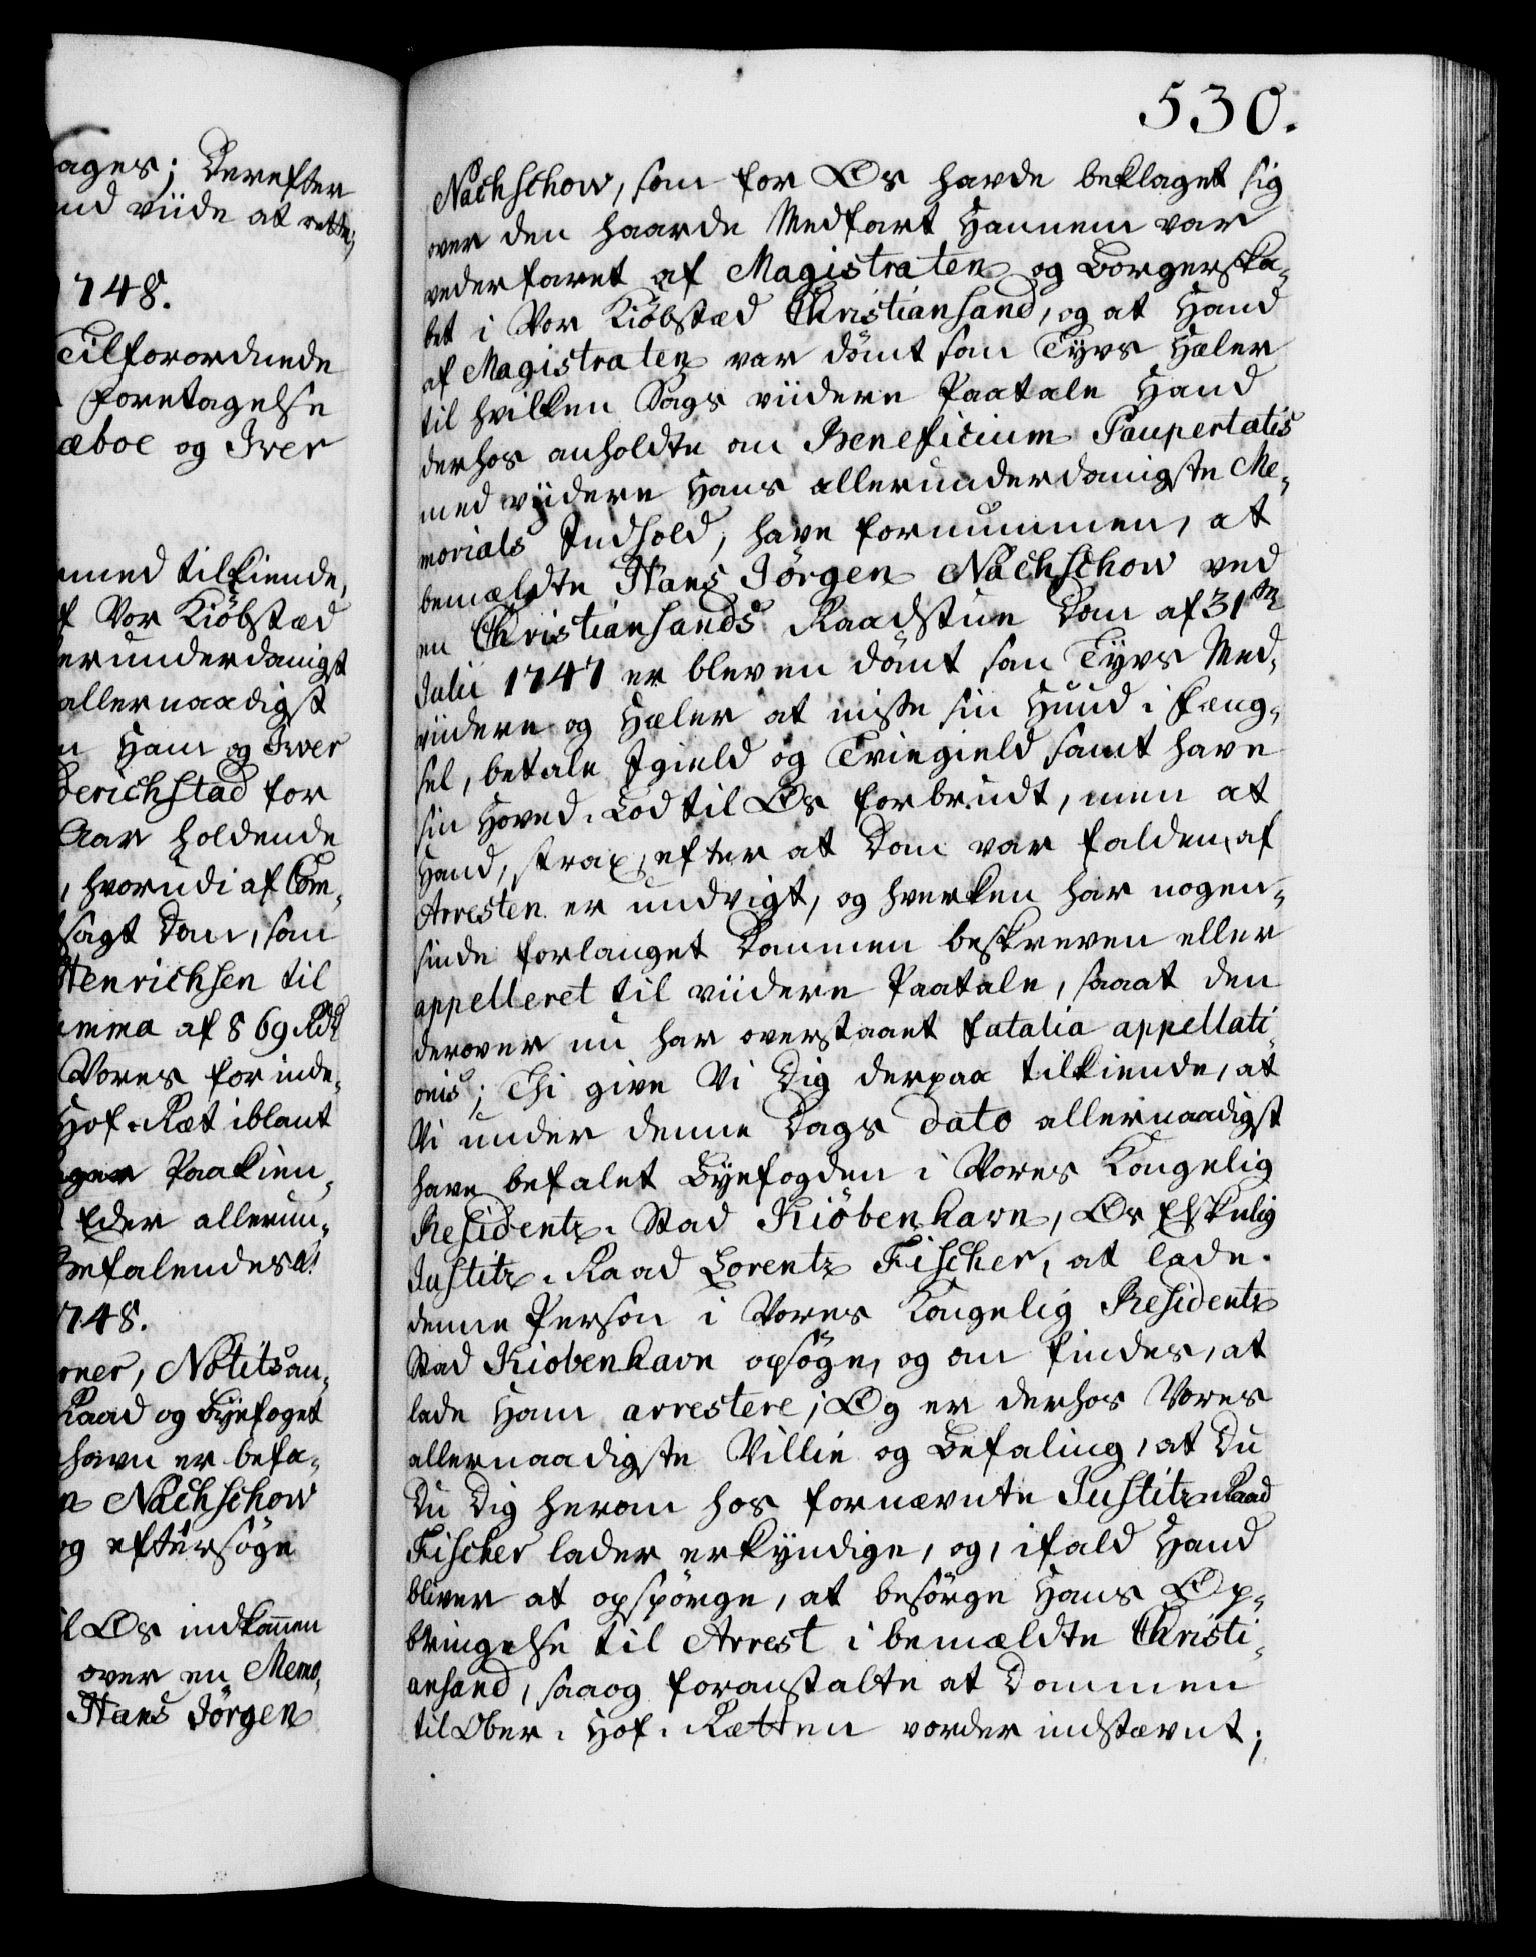 ages; Derefter
nd viide at rette,
1748.
Tilforordnede
Foretagelse
æboe og Iver
med tilkiende,
f Vor Kiöbstæd
erunderdanigst
allernaadigst
n Ham og Iver
derichstad for
Aar holdende
, hvorudi af Com-
sagt Dom, som
Henrichsen til
umma af 869 Rdl
Vores for inde-
Hof-Ræt iblant
Paakien-
Eder allerun-
Befalendes &c.
1748.
rner, Notits an-
Raad og Byefoget
havn er befa-
n Nachschow
og eftersöge
l Os indkommen
over en Memo-
Hans Jörgen
530.
Nachschow, som for Os havde beklaget sig
over den haarde Medfart Hannem var
vederfaret af Magistraten og Borgerska-
bet i Vor Kiöbstæd Christiansand, og at Hand
af Magistraten var dömt som Tyvs Hæler
til hvilken Sags viidere Paatale Hand
derhos anholdte om Beneficium Paupertatis
med viidere Hans allerunderdanigste Me-
morials Indhold, have fornummen, at
bemældte Hans Jörgen Nachschow ved
en Christiansands Raadstue Dom af 31te
Julii 1747 er bleven dömt som Tyvs Med-
viidere og Hæler at miste sin Huud i Fæng-
sel, betale Igield og Tviegield samt have
sin Hoved-Lod til Os forbrudt, men at
Hand, strax, efter at Dom var falden, af
Arresten er undvigt, og hverken har nogen-
sinde forlanget Dommen beskreven eller
appelleret til viidere Paatale, saaat den
derover nu har overstaaet fatalia appellati-
onis; Thi give Vi Dig derpaa tilkiende, at
Vi under denne Dags dato allernaadigst
have befalet Byefogden i Vores Kongelig
Residentz-Stad Kiöbenhavn, Os Elskelig
Justitz-Raad Lorentz Fischer, at lade
denne Person i Vores Kongelig Residentz
Stad Kiobenhavn opsöge, og om findes, at
lade Ham arrestere; Og er derhos Vores
allernaadigste Villie og Befaling, at Du
Du Dig herom hos fornævnte Justitz-Raad
Fischer lader erkyndige, og, ifald Hand
bliver at opspörge, at besörge Hans Op-
bringelse til Arrest i bemældte Christi-
ansand, saaog foranstalte at Dommen
til Ober-Hof-Rætten vorder indstævnt;